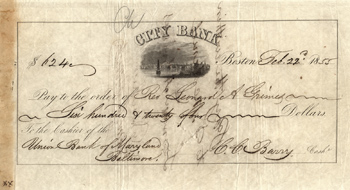 CITY BANK
$624 Boston Feb. 22d 185
Pay to the order of Rev Leonard A Grimes
Six hundred & twenty four Dollars
To the Cashier of the
Union Bank of Maryland
Baltimore. C. C. Barry Cash